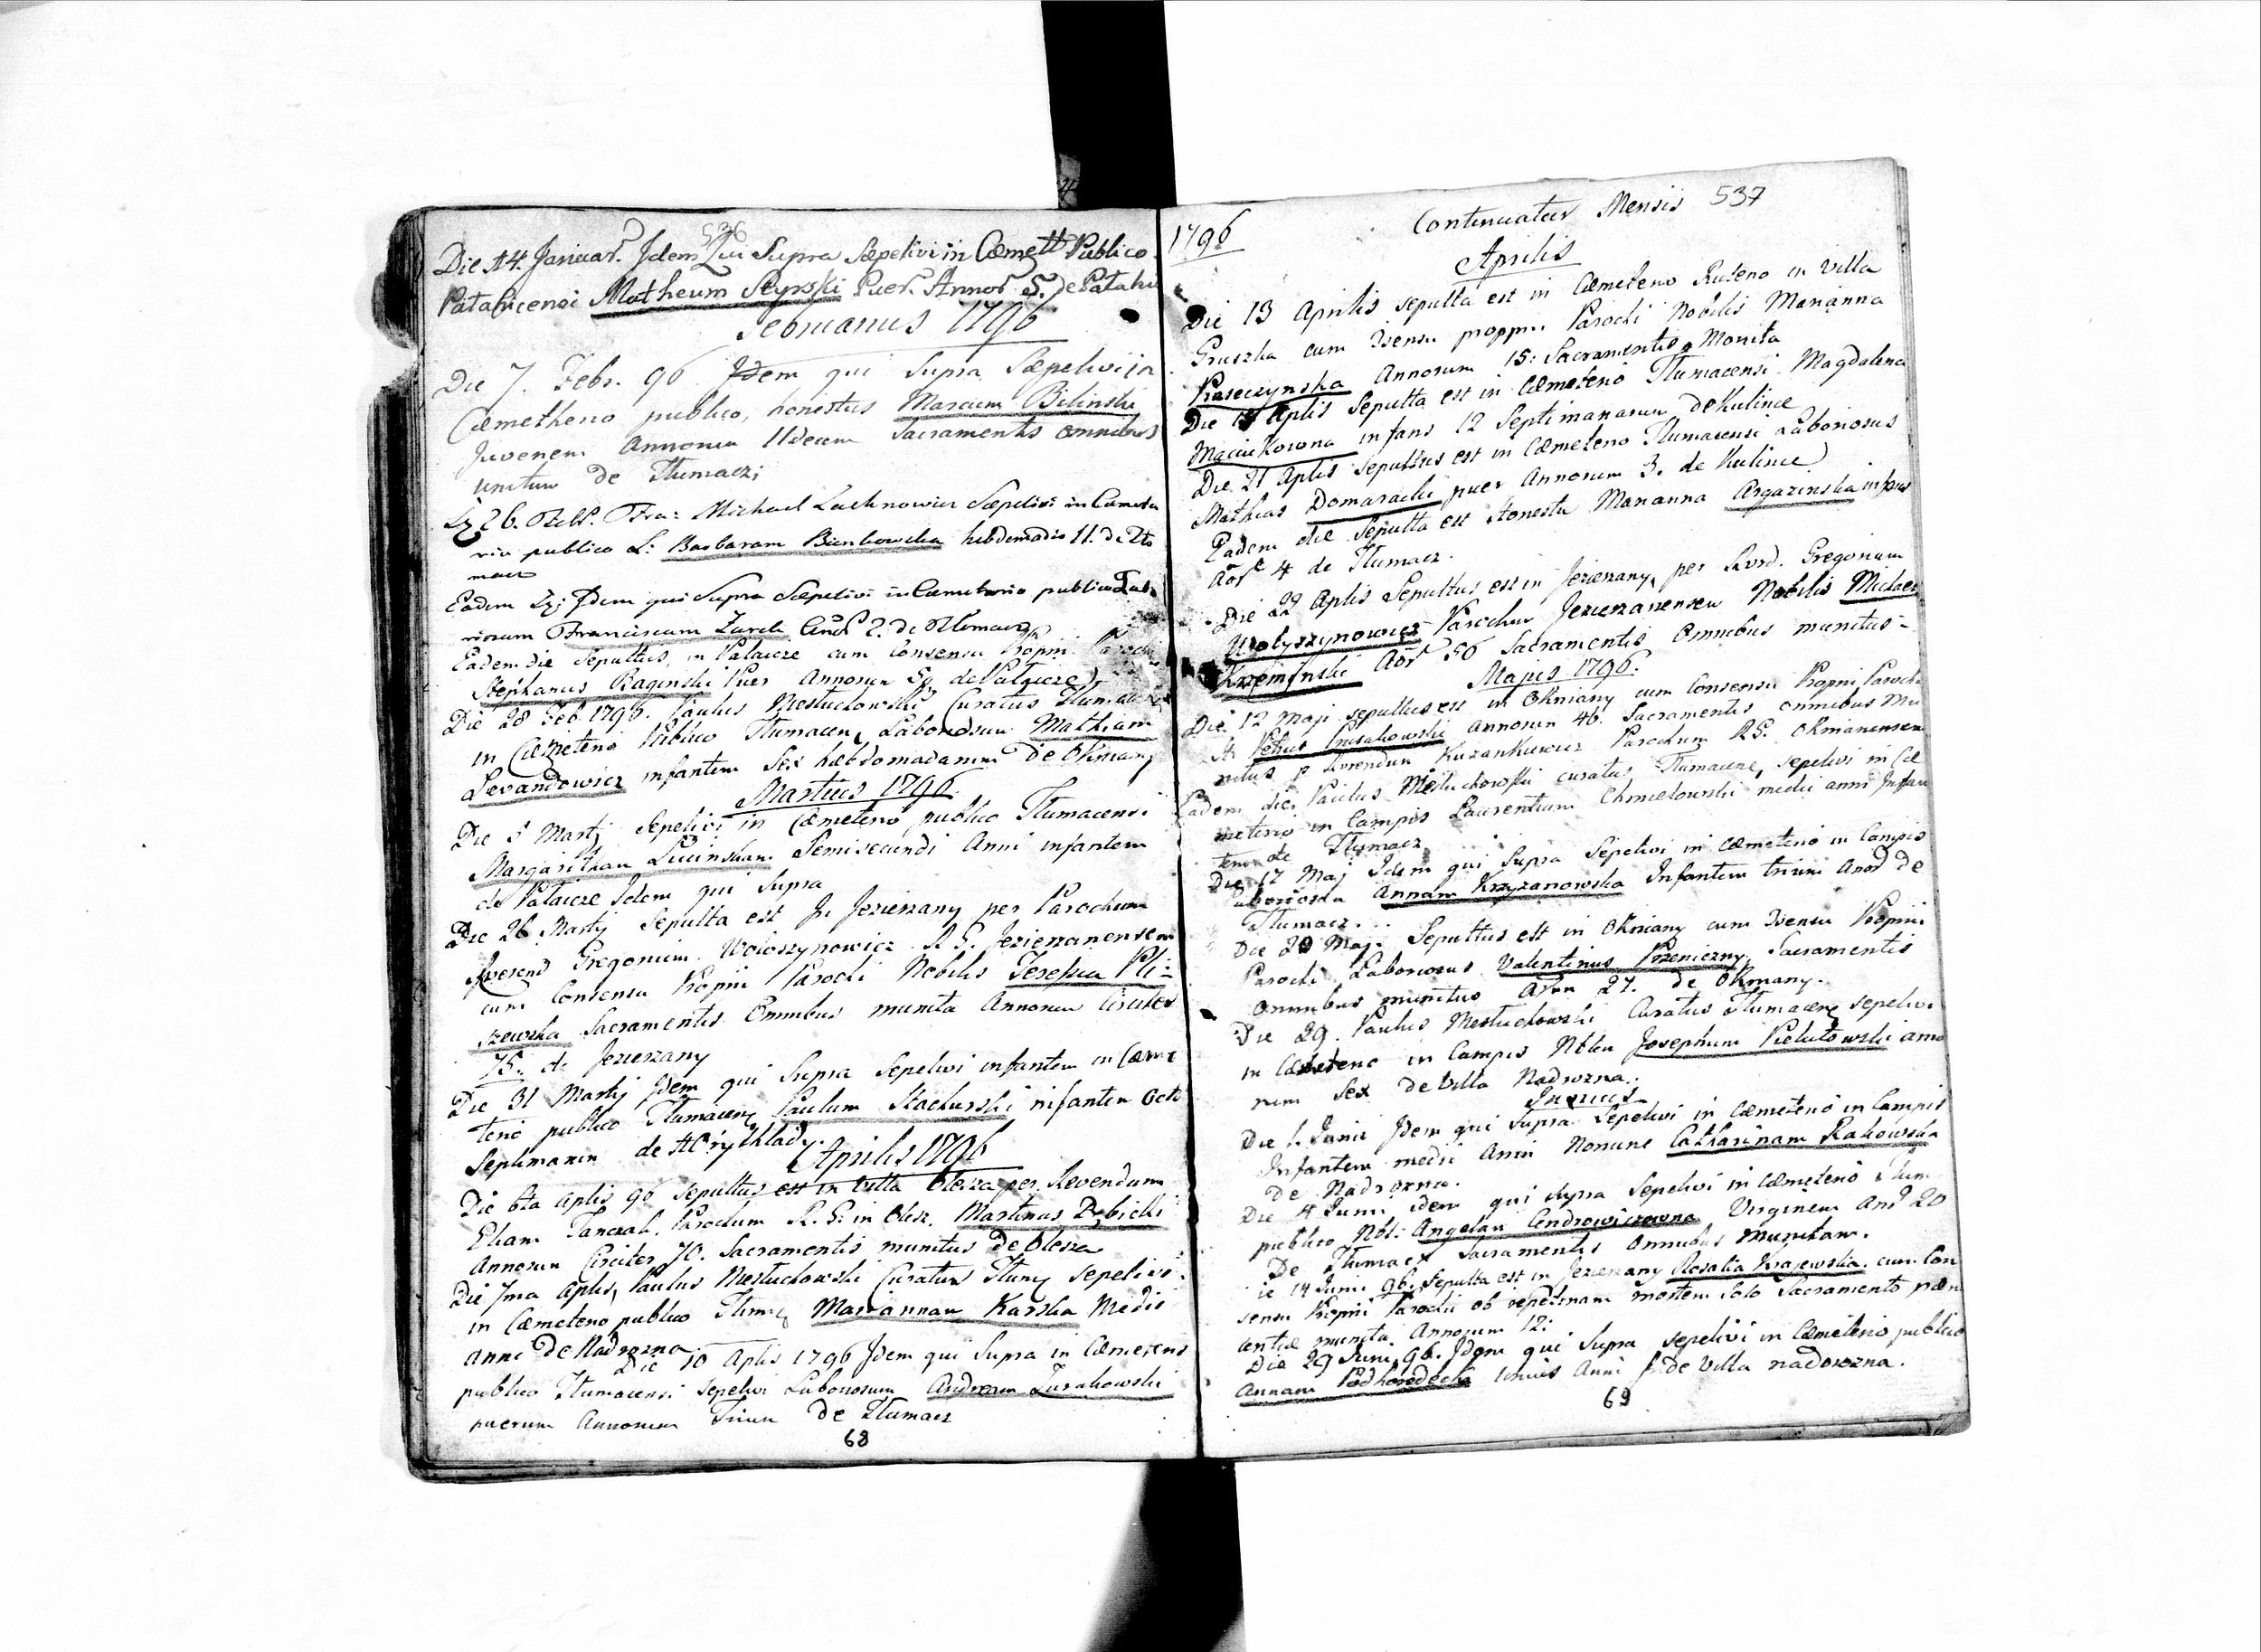 536
Die 14. Januar. Idem Qui Supra Sæpelivi in Cæmett Publico
Patahicensi Matheum Styrski Puer. Annor 5. de Patahi
Februarius 1796
Die 7. Febr. 96 Idem qui Supra Sæpelivi in
Cæmetherio publico, honestus Marcum Bilinski
Juvenem Annorum 11decem Sacramentis omnibus
unitum de Tlumacz;
26. Michael Lachnowicz Sæpelivi in Cæmete
rio publico L: Barbaram Bienkowska hebdomadis 11. de Tlu
macz
Eadem Idem qui Supra Sæpelivi in Cæmeterio publico Labo
riosum Franciscum Zurek 2. de Tlumacz
Eadem die Sepultus in Palaicze cum Consensu Propri: Parochi
Stephanus Baginski Puer Annorum de Palaicze
Die 28 Feb. 1796. Paulus Mestuchowski Curatus Tlumacen
in Cæmeterio Publico Tlumacen, Laboriosum Mathiam
Levandowicz infantem Sex hæbdomadarum de Okniany
Martius 1796
Die 5 Martij Sepelivi in Cæmeterio publico Tlumacensi
Margaritham Semisecundi Anni infantem
de Palaicze Idem qui Supra
Die 26 Martij Sepulta est In Jezierzany per Parochum
Rverend Gregorium Woloszynowicz R G. Jezierzanensem
cum Consensu Proprii Parochi Nobilis Teressa Pli-
szewska Sacramentis Omnibus munita Annorum Circiter
75. de Jezierzany
Die 31 Martij Idem qui Supra Sepelivi infantem in Cæme
terio publico Tlumacen, Paulum Stachurski infantem Octo
Septimanin de
Aprilis 1796
Die 6ta Aplis 96 Sepultus est in Villa Olesza per Revendum
Eliam Tanczak. Parochum R. G: in Olesz. Martinus Zębicki
Annorum Circiter 70. Sacramentis munitus de Olesza
Die 7ma Aplis, Paulus Mestuchowski Curatus Tlum, Sepelivi
in Cæmeterio publico Tlum, Mariannam Karska Medii
anni De Nadrozna
Die 10 Aplis 1796 Idem qui Supra in Cæmeterio
publico Tlumacensi Sepelivi Laboriosum Andream Zurakowski
puerum Annorum Trium De Tlumacz
68
1796
Continuatur Mensis 537
Aprilis
Die 13 Aprilis Sepulta est in Cæmeterio Ruteno in Villa
Gruszka cum proprii Parochi Nobilis Marianna
Annorum 15: Sacramentis Monita
Die Aplis Sepulta est in Cæmeterio Tlumacensi Magdalena
infans 12 Septimanarum de Kulince
Die 21 Aplis Sepultus est in Cæmeterio Tlumacensi Laboriosus
Mathias Domaracki puer Annorum 3. de Kulince
Eadem die Sepulta est Honesta Marianna infans
4 de Tlumacz.
Die 22 Aplis Sepultus est in Jezierzany, per Rvrd. Gregorium
Wolyszynowicz Parochum Jezierzanensem Nobilis Michael
Krzeminski 56 Sacramentis Omnibus munitus-
Majus 1796.
Die 12 Maji sepultus est in Okniany cum Consensu Proprii Parochi
Petrus annorum 46. Sacramentis omnibus Mu
nitus p Rvrendum Kuzankiewicz Parochum R G: Oknianensem
Eadem die Paulus Mestuchowski curatus Tlumacene, sepelivi in Cæ
meterio in Campis Laurentium Chmielowski medii anni Infan
tem de Tlumacz
Die 17 Maj Idem qui Supra Sepelivi in Cæmeterio in Campis
Annam Krzyzanowska Infantem trium de
Tlumacz...
Die 20 Maj. Sepultus est in Okniany cum Proprii
Parochi Laboriosus Valentinus Przeniczny Sacramentis
omnibus munitus 27. de Okniany.
Die 29. Paulus Mestuchowski Curatus Tlumacen, sepelivi
in Cæmeterio in Campis Josephum anno
rum Sex de Villa Nadrozna.
Junius
Die 1. Junii Idem qui Supra Sepelivi in Cæmeterio in Campis
Infantem medii Anni Nomine Catharinam Rakowska
De Nadrozna.
Die 4 Junii idem qui Supra Sepelivi in Cæmeterio Tlum
publico Nbl: Angelam Cendrowiczowna Virginem 20
De Tlumacz Sacramentis Omnibus Munitam.
ie 14 Junii 96. Sepulta est in Jezierzany Rosalia Krajewska. cum Con
sensu Proprii Parochi ob repetinam mortem Solo Sacramento pæni
tentiæ munita Annorum 12:
Die 29 Juni 96. Idem qui Supra sepelivi in Cæmeterio publico
Annam Podhorodecka Unius Anni de Villa nadrozna.
69